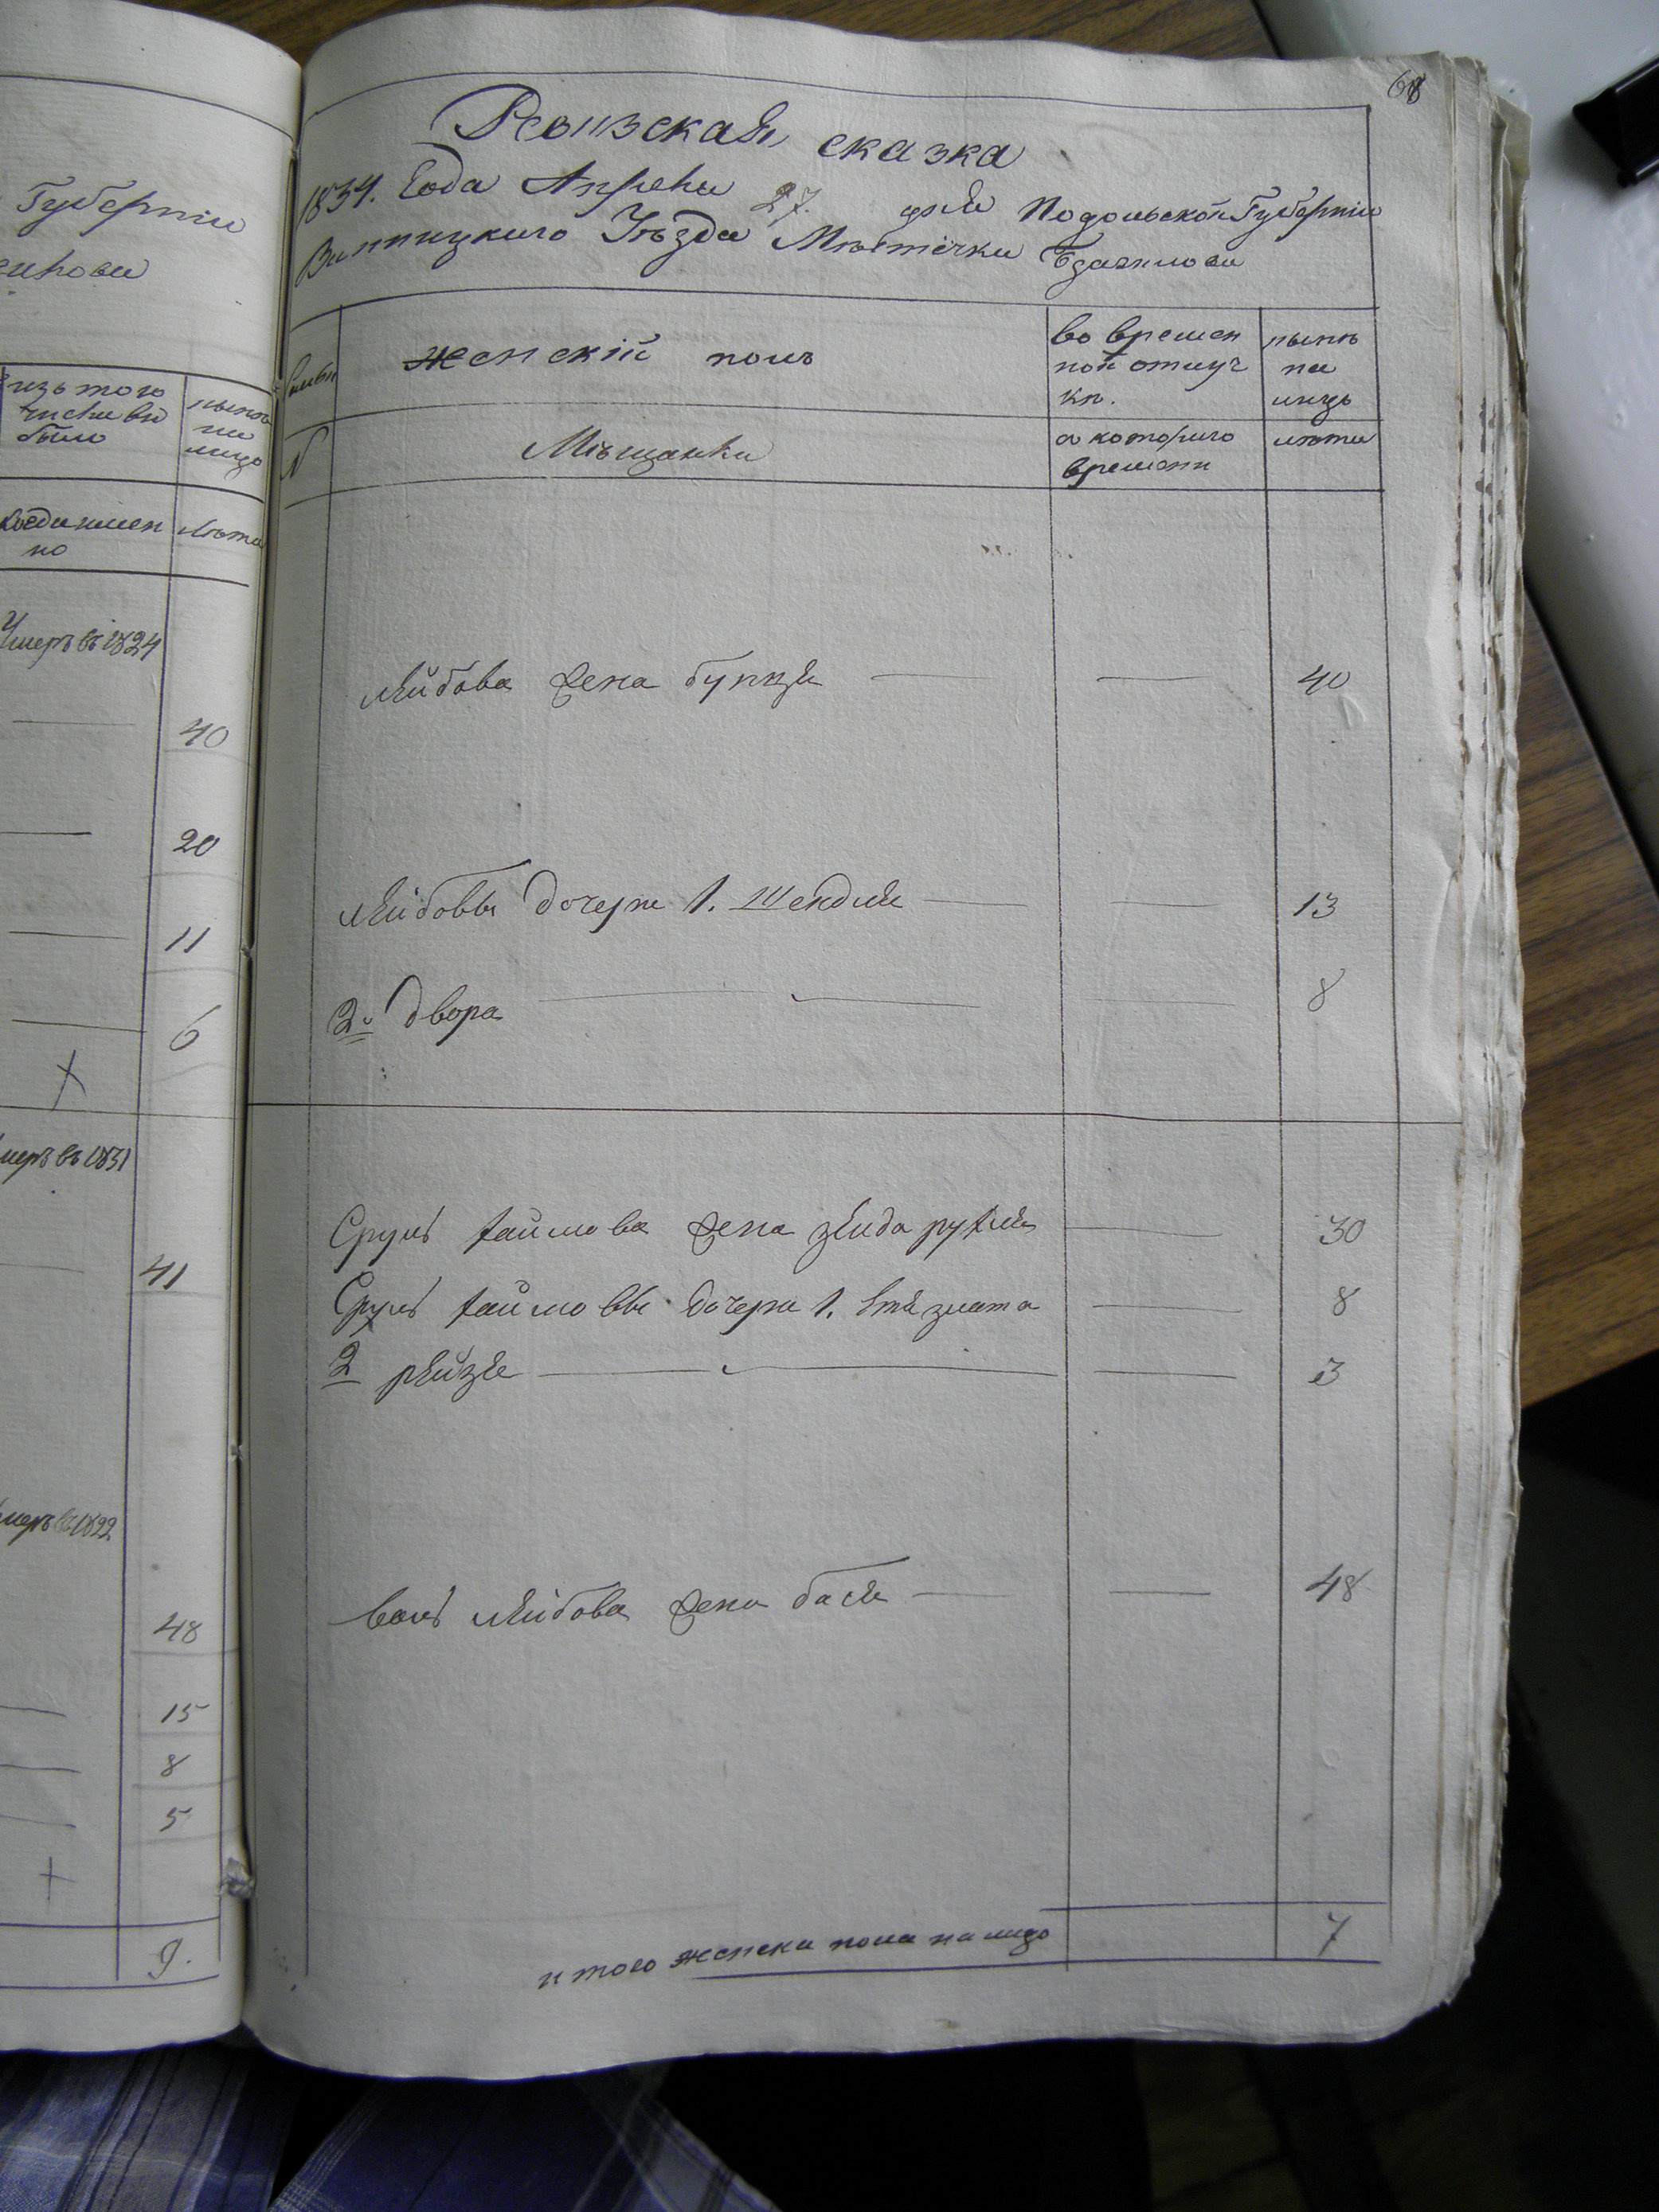 Губерніи
изъ того
числа вы
было
нынѣ
на
лицо
когда имен
но
лѣта
Умеръ въ 1824
40
20
11
6
меръ въ 1831
41
меръ въ 1822
48
15
8
5
9.
68
Ревизская сказка
1834. Года Апреля 27. дня Подольской Губерніи
Винницкаго Уѣзда Мѣстечка
женскій полъ
во времен
ной отлуч
ки.
нынѣ
на
лицо
Мѣщанки
с котораго
времени
лѣта
лейбова жена бунця 40
лейбовы дочери 1. Шендля 13
2. двора 8
Срулѣ хаимова жена рухля 30
Срулѣ хаимовы дочери 1. злата 8
2 рейзя 3
лейбова жена бася 48
итого женска пола на лицо 7